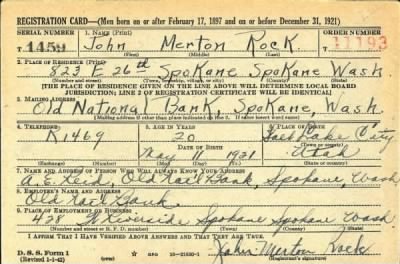 REGISTRATION CARD—(Men born on or after February 17, 1897 and on or before December 31, 1921)
SERIAL NUMBER 1. NAME (Print) ORDER NUMBER
T 1459 John Merton Rock 11193
(First) (Middle) (Last)
2. PLACE OF RESIDENCE (Print)
823 E 26th Spokane Spokane Wash.
(Number and street) (Town, township, village, or city) (County) (State)
[THE PLACE OF RESIDENCE GIVEN ON THE LINE ABOVE WILL DETERMINE LOCAL BOARD
JURISDICTION; LINE 2 OF REGISTRATION CERTIFICATE WILL BE IDENTICAL]
3. MAILING ADDRESS
Old National Bank, Spokane, Wash.
[Mailing address if other than place indicated on line 2. If same insert word same]
4. TELEPHONE 5. AGE IN YEARS 6. PLACE OF BIRTH
K1469 20 Salt Lake City
DATE OF BIRTH (Town or county)
May 11 1921 Utah
(Exchange) (Number) (Mo.) (Day) (Yr.) (State or country)
7. NAME AND ADDRESS OF PERSON WHO WILL ALWAYS KNOW YOUR ADDRESS
A. E. Reid, Old Natl Bank, Spokane, Wash
8. EMPLOYER'S NAME AND ADDRESS
Old Natl Bank
9. PLACE OF EMPLOYMENT OR BUSINESS
W Riverside Spokane Spokane Wash
(Number and street or R. F. D. number) (Town) (County) (State)
I AFFIRM THAT I HAVE VERIFIED ABOVE ANSWERS AND THAT THEY ARE TRUE.
D. S. S. Form 1
(Revised 1-1-42) (over) GPO 16—21630-1
John Merton Rock
(Registrant's signature)